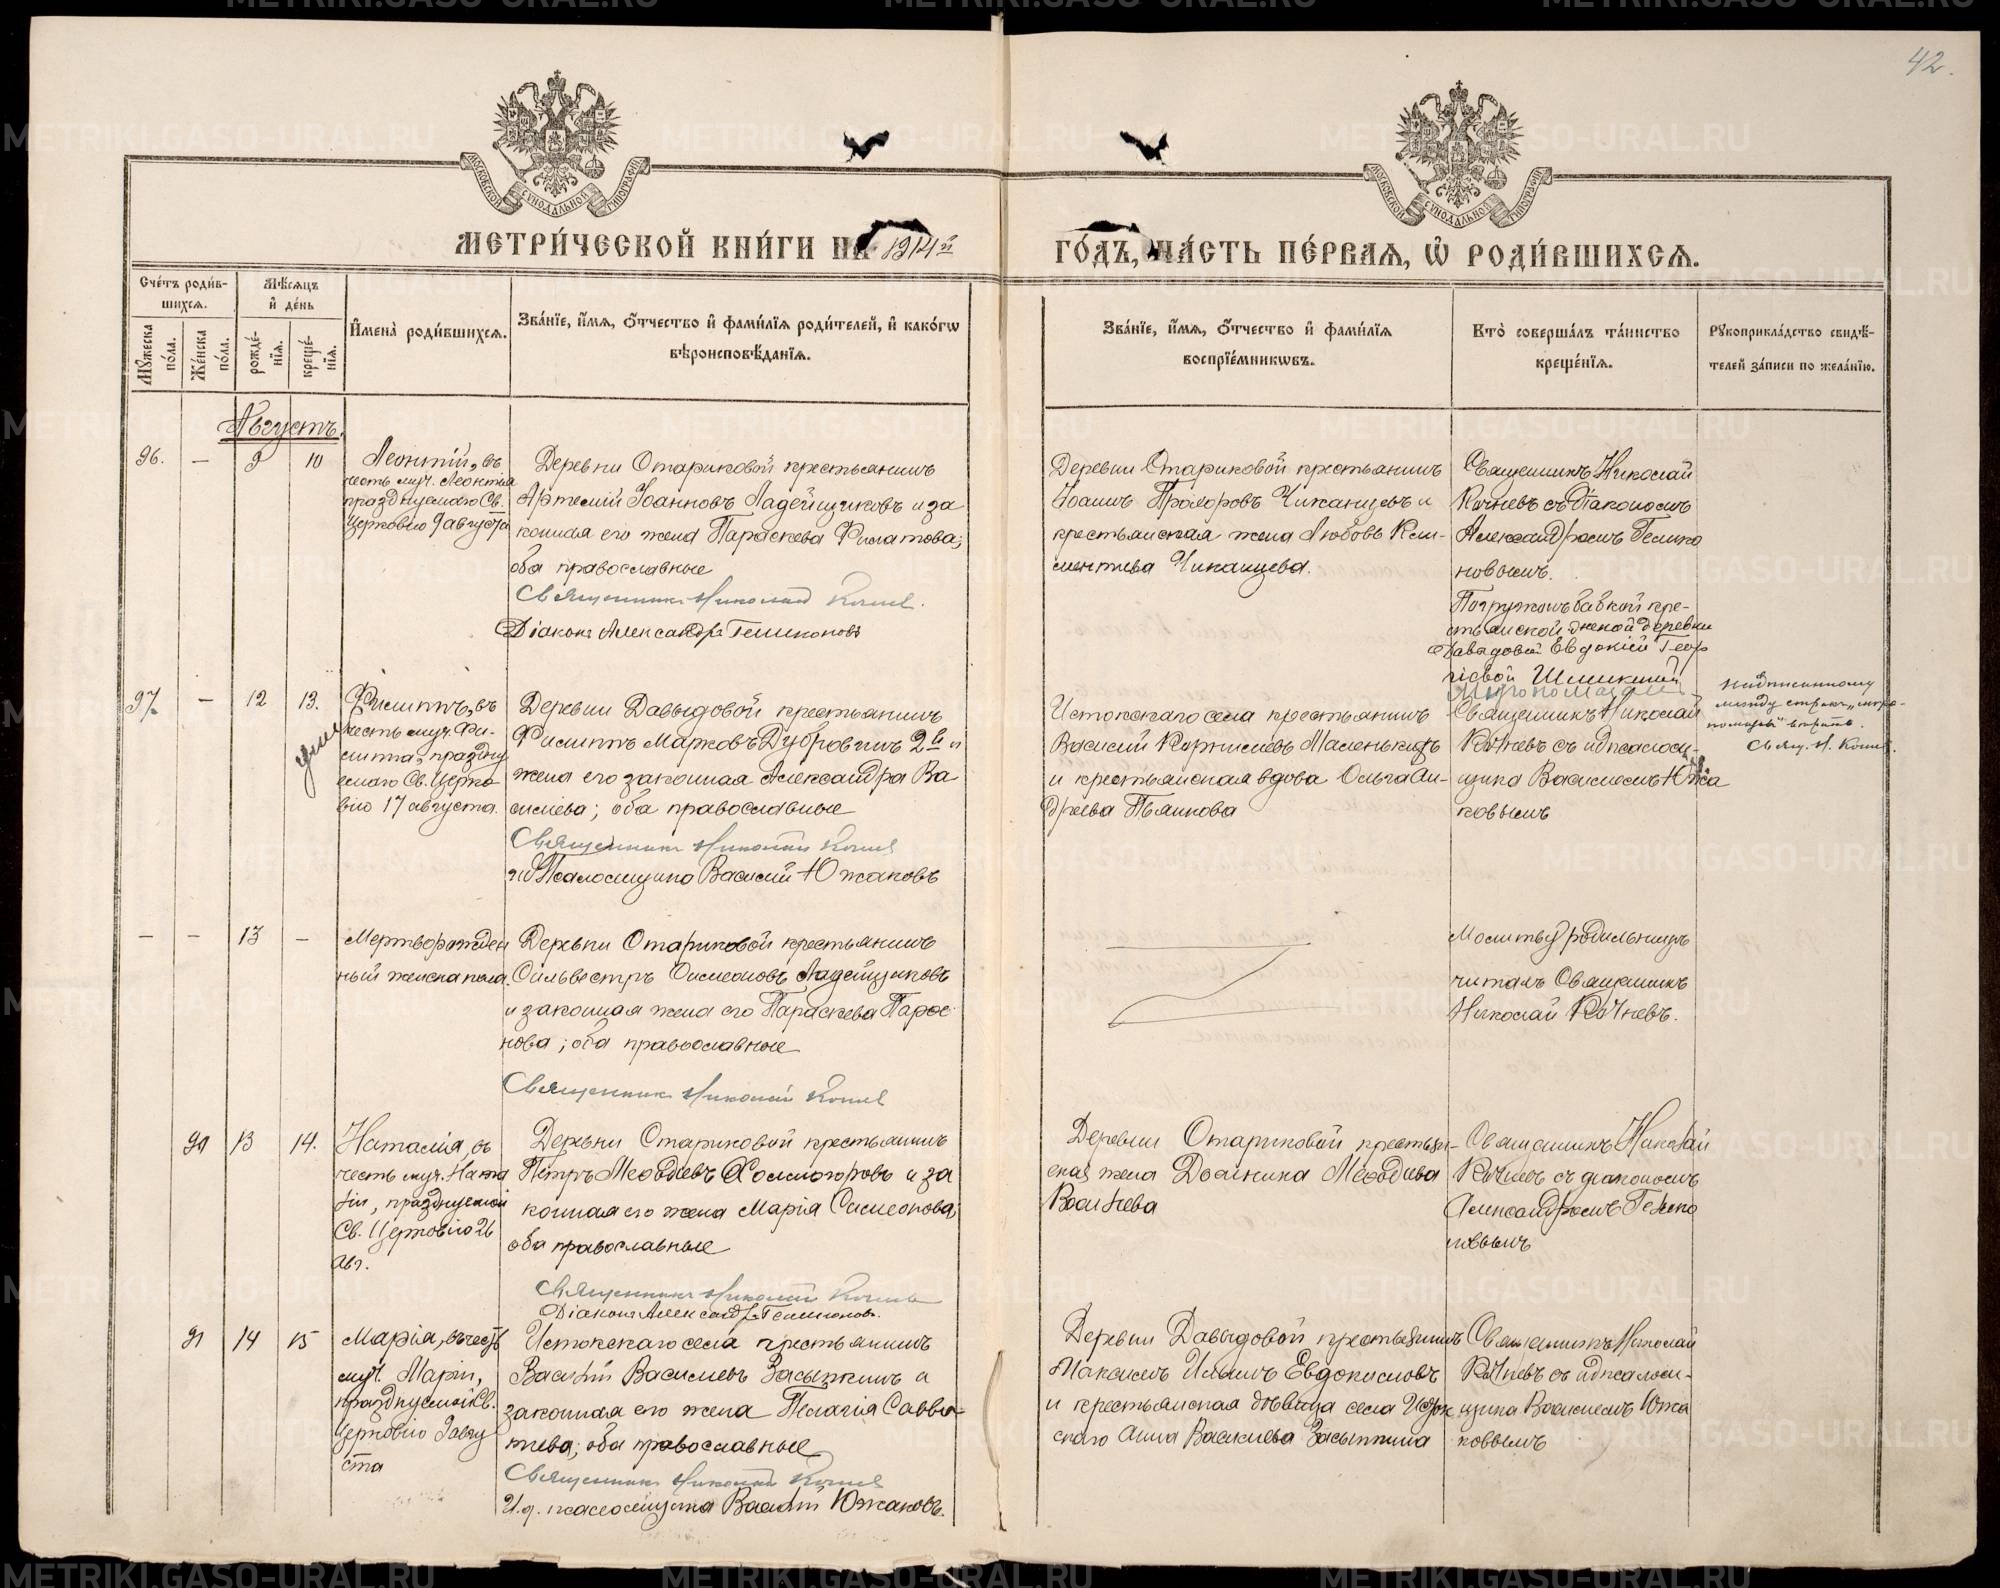 42.
МОСКОВСКОЙ СѴНОДАЛЬНОЙ ТИПОГРАФІИ
МОСКОВСКОЙ СѴНОДАЛЬНОЙ ТИПОГРАФІИ
МЕТРИ́ЧЕСКОЙ КНИ́ГИ НА 1914й
ГО́ДЪ, ЧА́СТЬ ПЕ́РВАѦ, Ѡ҆ РОДИ́ВШИХСѦ.
Сче́тъ роди́в-
шихсѧ.
Мꙋжеска по́ла.
Же́нска по́ла.
Мѣ́сѧцъ
и҆ де́нь
рожде́-
нїѧ.
креще́-
нїѧ.
И҆мена̀ роди́вшихсѧ.
Зва́нїе, и҆́мѧ, ѻ҆́тчество и҆ фами́лїѧ роди́телей, и҆ како́гѡ
вѣроисповѣ́данїѧ.
Зва́нїе, и҆́мѧ, ѻ҆́тчество и҆ фами́лїѧ
воспрїе́мникѡвъ.
Кто̀ соверша́лъ та́инство
креще́нїѧ.
Рꙋкоприкла́дство свидѣ́-
телей за́писи по жела́нїю.
Августъ.
96. — 9 10
Леонтій, въ
честь муч. Леонтія
празднуемаго Св.
Церковію 9 августа
Деревни Отариковой крестьянинъ
Артемій Іоанновъ Ладейщиковъ и за
конная его жена Параскева Филатова;
оба православные
Священникъ Николай Кочнев.
Діаконъ Александръ Геликоновъ
Деревни Отариковой крестьянинъ
Іоаннъ Прохоровъ Чиканцевъ и
крестьянская жена Любовь Кли-
ментьева Чиканцева.
Священникъ Николай
Кочневъ съ діакономъ
Александромъ Гелико
новымъ.
Погружонъ бабкой кре-
стьянской женой деревни
Давыдовой Евдокіей Геор
гіевой
97. — 12 13.
Филиппъ, въ
честь муч. Фи-
липпа, праздну
емаго Св. Церко
вію 17 августа.
Деревни Давыдовой крестьянинъ
Филиппъ Марковъ Дубровинъ 2й и
жена его законная Александра Ва
силіева; оба православные
Священникъ Николай Кочнев
Псаломщика Василій Южаковъ
Истокскаго села крестьянинъ
Василій Корниліевъ Маленькихъ
и крестьянская вдова Ольга Ан-
дреева Пьянкова
Муропомазалъ
Священникъ Николай
Кочневъ съ и д псалом-
щика Василіемъ Южа
ковымъ
Надписанному
между строкъ „муро-
помазалъ" вѣрить.
Свящ. Н. Кочнев.
— — 13 —
Мертворожден
ный женска пола.
Деревни Отариковой крестьянинъ
Сильвестръ Симеоновъ Ладейщиковъ
и законная жена его Параскева Парѳе
нова; оба православные
Священникъ Николай Кочнев
Молитву родильницѣ
читалъ Священникъ
Николай Кочневъ.
90 13 14.
Наталія, въ
честь муч. Ната
ліи, празднуемой
Св. Церковію 26
Авг.
Деревни Отариковой крестьянинъ
Петръ Меѳодіевъ Холмогоровъ и за
конная его жена Марія Симеонова;
оба православные
Священникъ Николай Кочнев
Діаконъ Александръ Геликонов.
Деревни Отариковой крестьян-
ская жена Домника Меѳодіева
Священникъ Николай
Кочневъ съ діакономъ
Александромъ Гелико
новымъ
91 14 15
Марія, въ честь
муч. Маріи,
празднуемой Св.
Церковію 9 авгу
ста
Истокскаго села крестьянинъ
Василій Василіевъ Засыпкинъ и
законная его жена Пелагія Савва-
тіева; оба православные
Священникъ Николай Кочнев
И. д. псаломщика Василій Южаковъ.
Деревни Давыдовой крестьянинъ
Максимъ Ильинъ Евдокимовъ
и крестьянская дѣвица села Исток
скаго Анна Василіева Засыпкина
Священникъ Николай
Кочневъ съ и д псалом-
щика Василіемъ Южа
ковымъ
METRIKI.GASO-URAL.RU